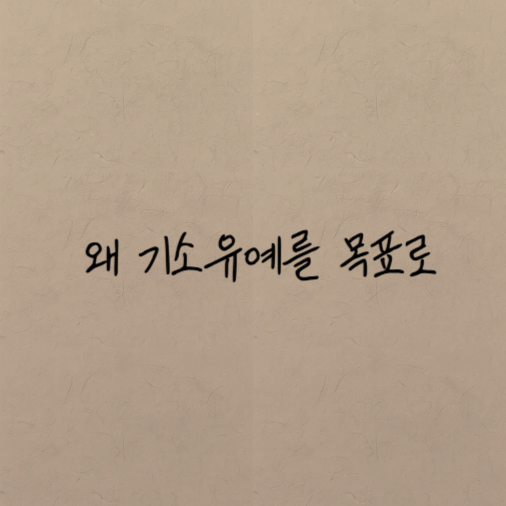 왜 기소유예를 목표로